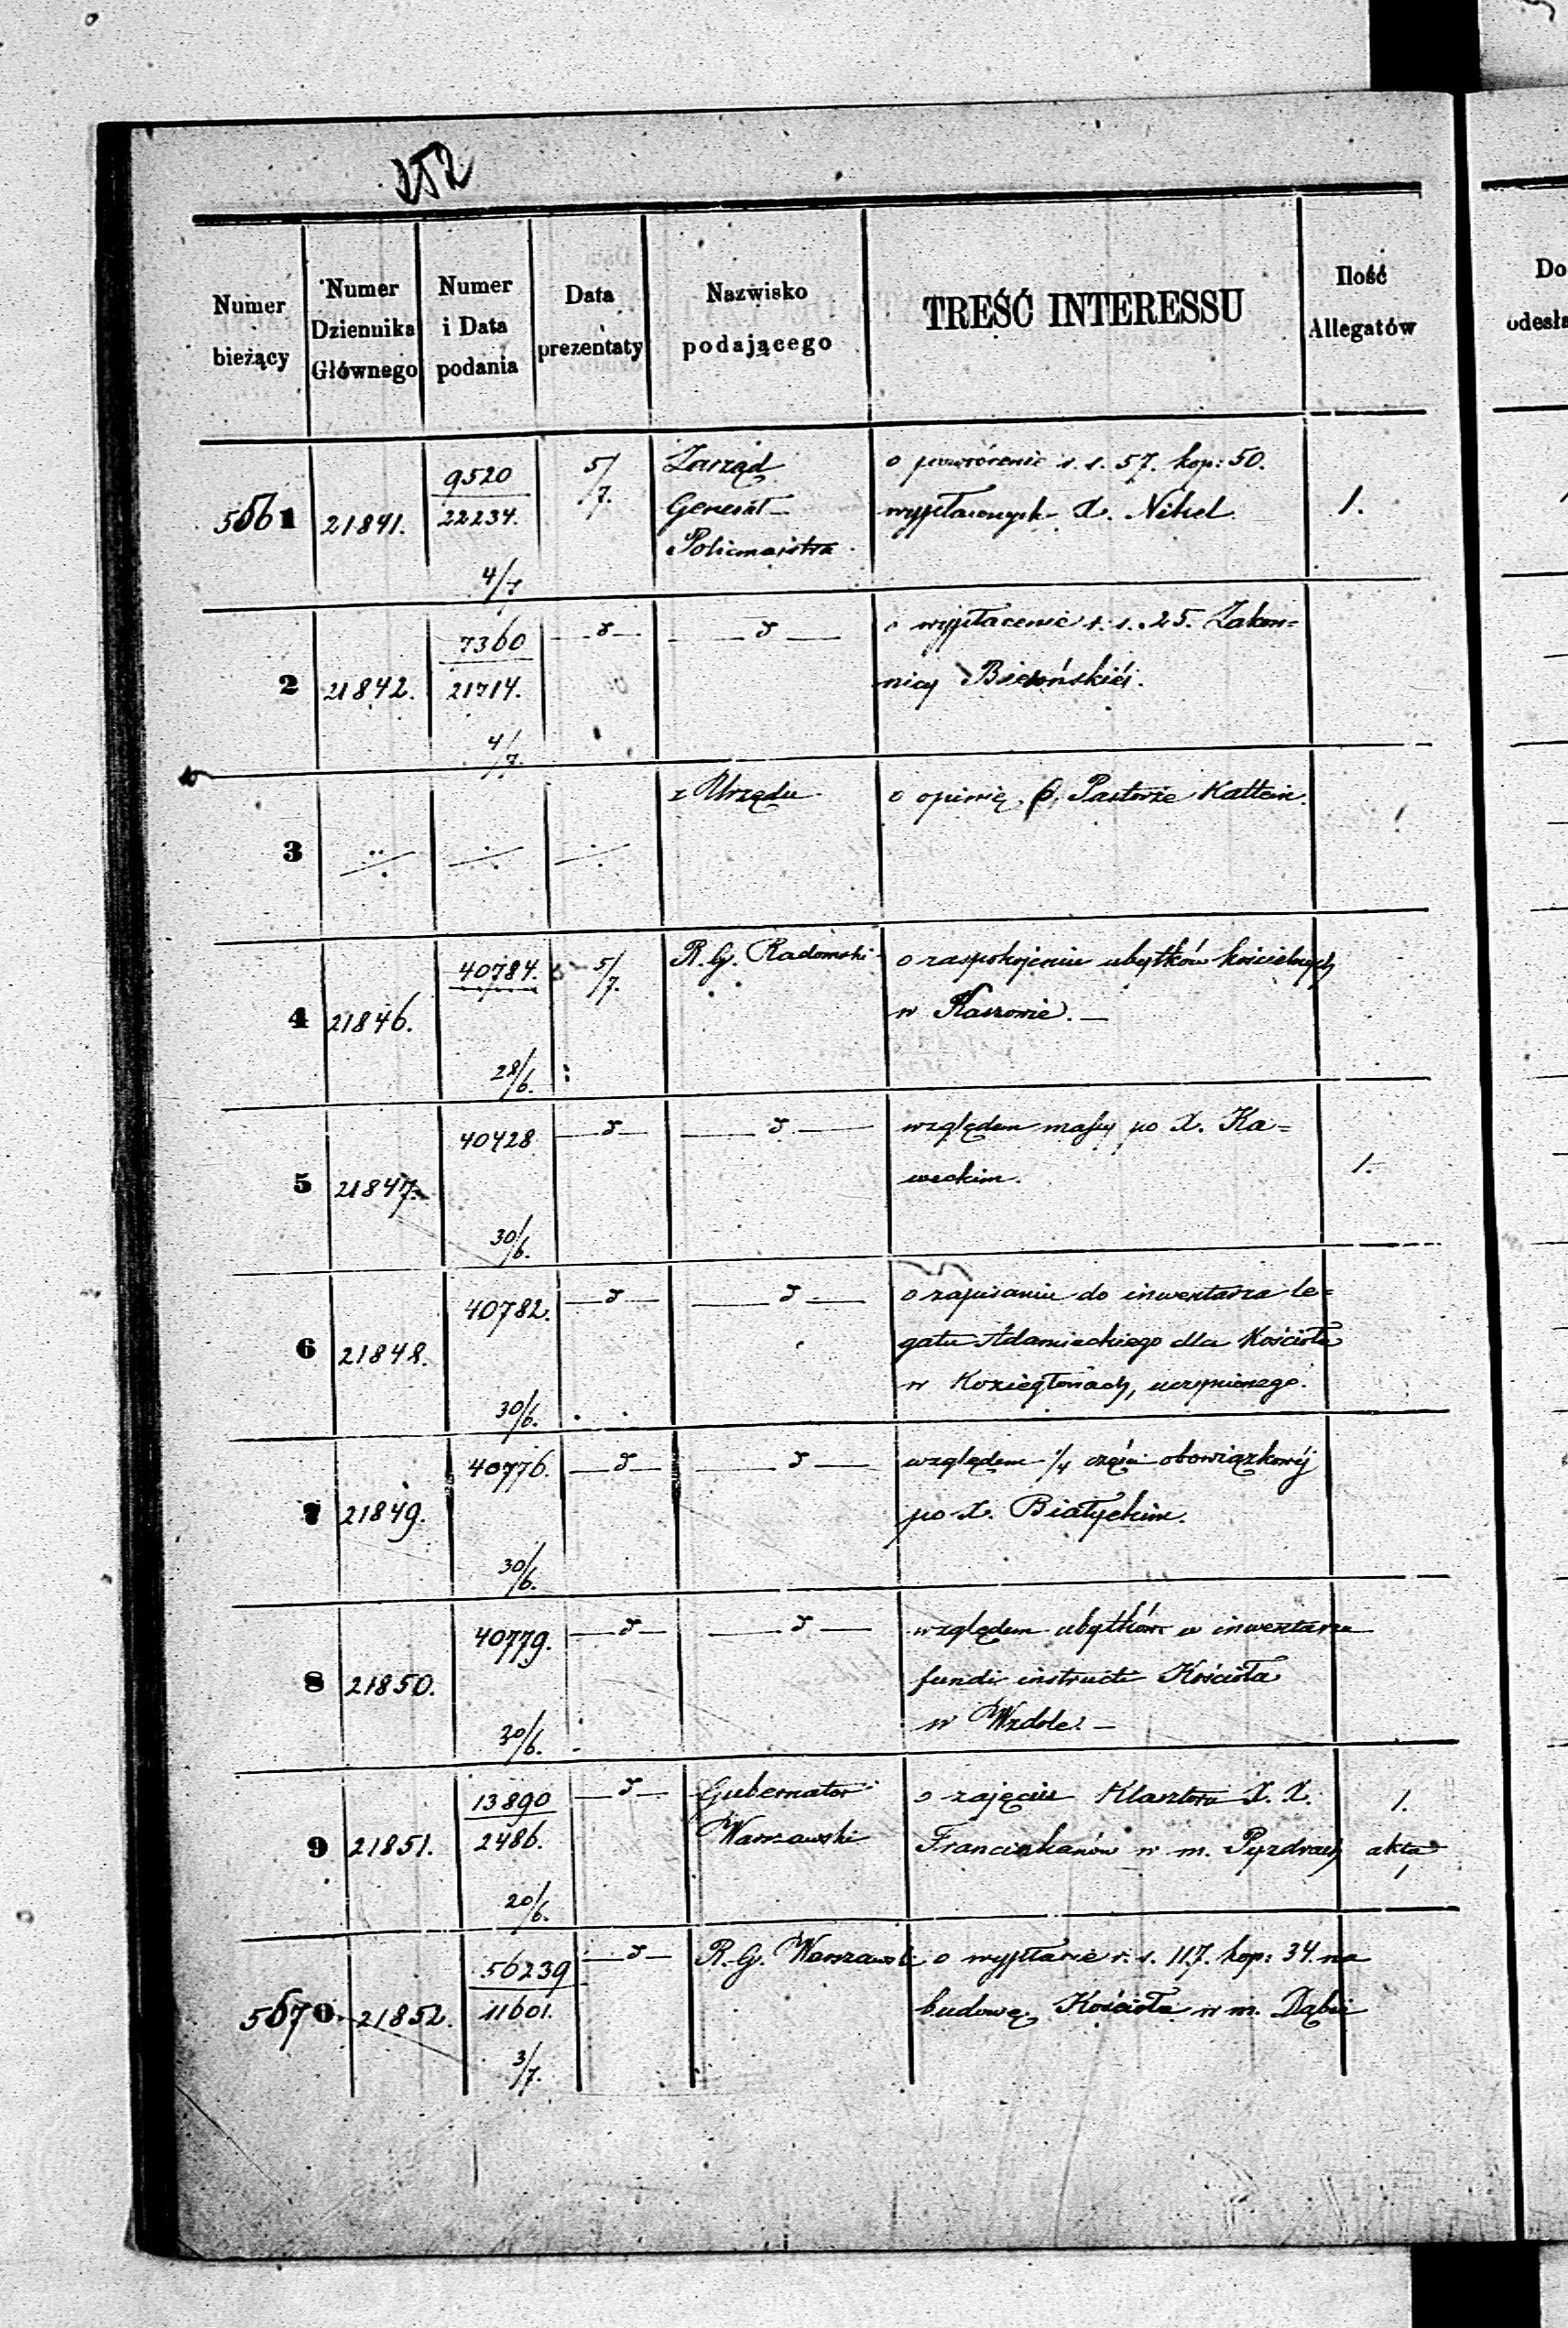 252
Numer bieżący
Numer Dziennika Głównego
Numer i Data podania
Data prezentaty
Nazwisko podającego
TREŚĆ INTERESSU
Ilość Allegatów
Do
odesła
5661 21841. 9520 22234. 4/7 5/7. Zarząd o powrócenie r. s. 57. kop: 50. 1.
Generał- wypłaconych X. Nikel
Policmajstra
2 21842. 7360 21714. 4/7. — d — — d — o wypłacenie r. s. 25. Zakon=
nicy
3 z Urzędu o opinię o Pastorze
4 21846. 40784. 28/6. 5/7. R. G. Radomski o zaspokojeniu ubytków kościelnych
w
5 21847. 40428 30/6. — d — — d — względem massy po X. Ka= 1.
weckim.
6 21848. 40782. 30/6. — d — — d — o zapisaniu do inwentarza le=
gatu Adamieckiego dla Kościoła
w Koziegłowach, uczynionego.
7 21849. 40776. 30/6. — d — — d — względem 1/4 części obowiązkowéj
po X. Białyckim.
8 21850. 40779. 30/6. — d — — d — względem ubytków w inwentarzu
fundi instructi Kościoła
w Wzdole. —
9 21851. 13890 2486. 20/6. — d — Gubernator o zajęciu Klasztoru X. X. 1.
Warszawski Franciszkanów w m. Pyzdrach akta
5670. 21852. 56239 11601. 3/7. — d — R. G. Warszawski o wypłacie r. s. 117. kop: 34. na
budowę Kościoła w m. Dąbiu